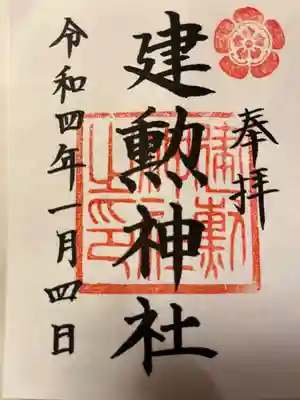 奉拝
建勲神社
建勲神社之印
令和四年一月四日